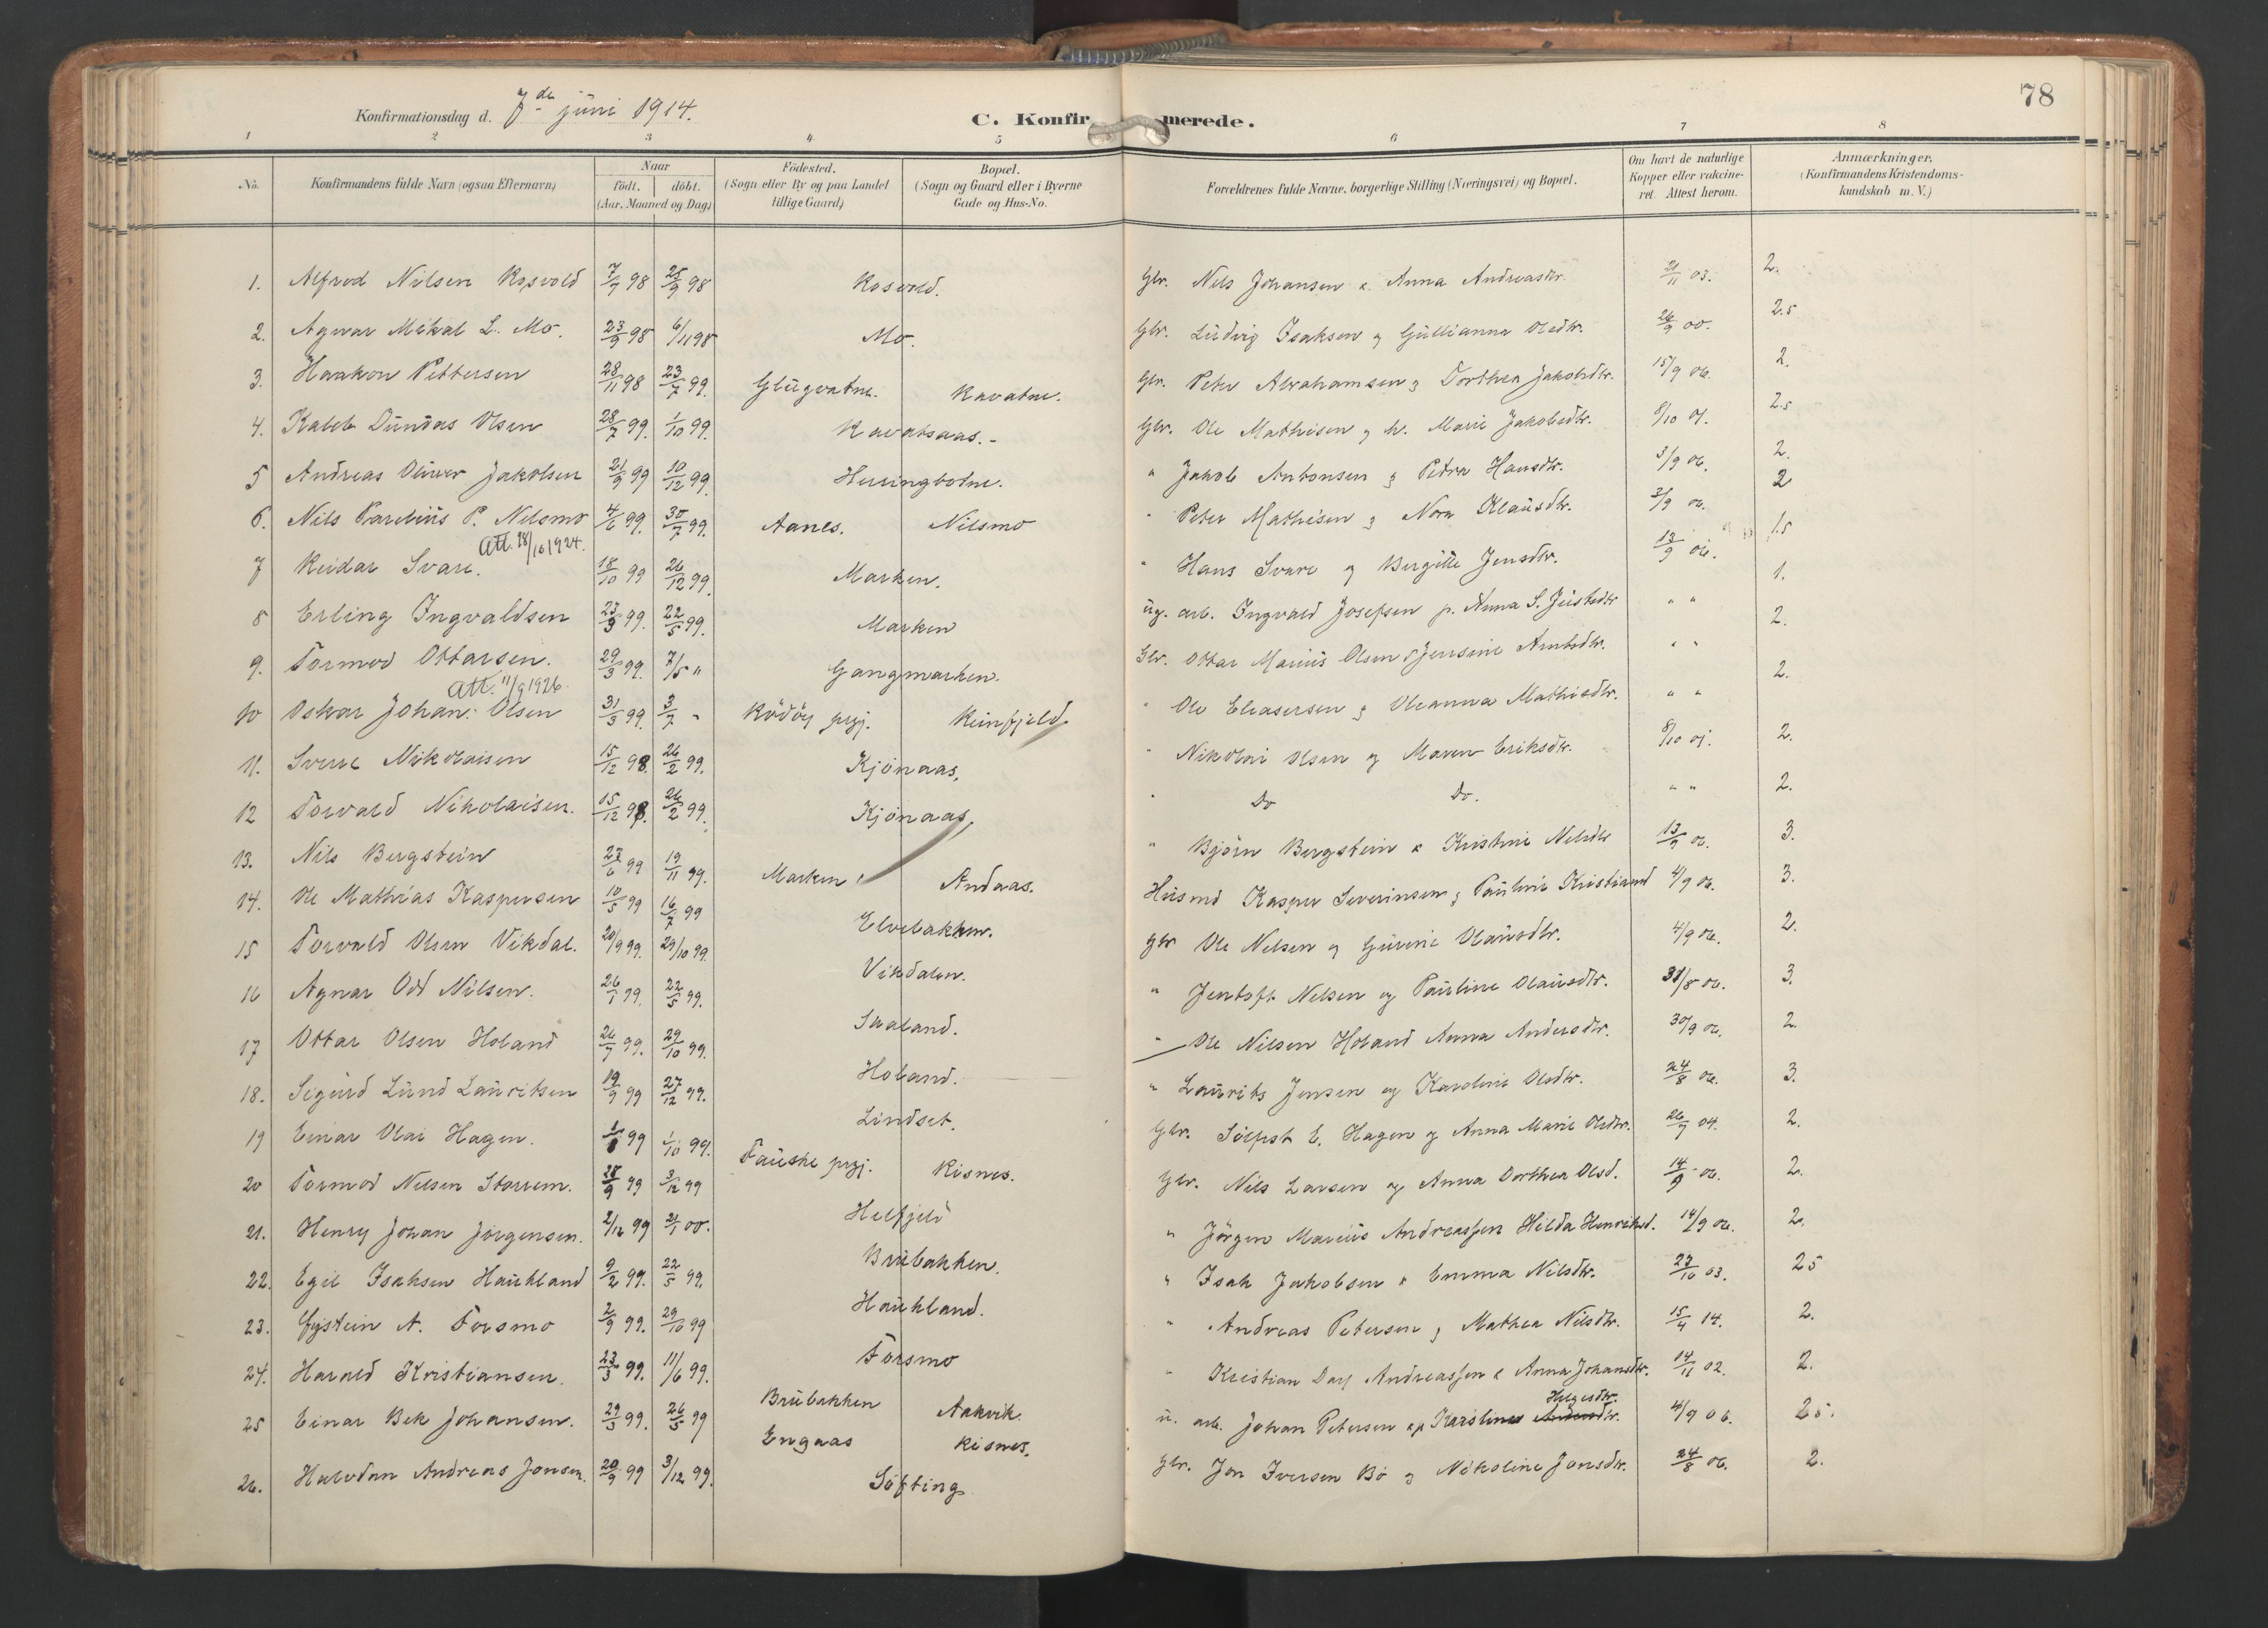 78
Konfirmationsdag d. 7de juni 1914.
C. Konfirmerede.
1 2 3 4 5 6 7 8
No. Konfirmandens fulde Navn (ogsaa Efternavn) Naar födt. döbt. (Aar, Maaned og Dag) Födested. (Sogn eller By og paa Landet tillige Gaard) Bopæl. (Sogn og Gaard eller i Byerne Gade og Hus-No. Forældrenes fulde Navne, borgerlige Stilling (Næringsvei) og Bopæl. Om havt de naturlige Kopper eller vakcineret. Attest herom. Anmærkninger. (Konfirmandens Kristendomskundskab m. V.)
1. Alfred Nilsen Rosvold 7/7 98 25/9 98 Rosvold. Gbr. Nils Johansen & Anna Andreasdtr. 21/11 03. 2.
2. Agnar Mikal L. Mo. 23/9 98 6/11 98 Mo. Gbr. Ludvig Isaksen og Gullianna Olsdtr. 26/9 00. 2.5
3. Haakon Pettersen 28/11 98 23/7 99. Glugvatne. Ravatne. Gbr. Peter Abrahamsen og Dorthea Jakobdtr. 15/9 06. 2.
4. Kaleb Dundas Olsen 28/7 99. 1/10 99. Ravatsaas. Gbr. Ole Mathisen og h. Marie Jakobsdtr. 8/10 01. 2.5
5 Andreas Oliver Jakobsen 21/9 99 10/12 99. Husingbotne. " Jakob Antonsen og Petra Hansdtr. 3/9 06. 2.
6. Nils Parelius P. Nilsmo 4/6 99. 30/7 99. Aanes. Nilsmo " Peter Mathisen og Nora Klausdtr. 3/9 06. 2
Att. 28/10 1924.
7 Reidar Svare. 18/10 99 26/12 99. Marken. " Hans Svare og Bergitte Jensdtr. 13/9 06. 1.5
8 Erling Ingvaldsen 23/3 99. 22/5 99. Marken ug. arb. Ingvald Josefsen p. Anna S. Justsdtr " " 1.
9. Tormod Ottarsen. 29/3 99. 7/5 " Gangmarken. Gbr. Ottar Marius Olsen & Jensine Arntsdtr. " " 2.
Att. 11/9 1926.
10 Oskar Johan Olsen 31/3 99. 3/7 " Rödöy prgj. Reinfjeld " Ole Eleasersen og Oleanna Mathisdtr. " " 2.
11. Sverre Nikolaisen 15/12 98. 26/2 99. Kjönaas. " Nikolai Olsen og Maren Eriksdtr. 8/10 01. 2.
12 Torvald Nikolaisen. 15/12 98. 26/2 99. Kjönaas. " Do Do. " " 2.
13. Nils Bergstein 23/6 99 19/11 99. Marken Andaas. " Björn Bergstein & Kristine Nilsdtr 13/9 06. 3.
14. Ole Mathias Kaspersen 10/5 99 16/7 99 Elvebakken. Husmd Kasper Severinsen og Pauline Kristiansd 4/9 06. 3.
15 Torvald Olsen Vikdal. 20/9 99. 29/10 99. Vikdalen. Gbr Ole Nelsen og Gurine Olausdtr. 4/9 06. 2.
16 Agnar Odd Nilsen. 26/1 99. 22/5 99. Saaland. " Jentoft Nelsen og Pauline Olausdtr. 31/8 06. 3.
17 Ottar Olsen Holand 26/7 99. 29/10 99. Holand. " Ole Nilsen Holand Anna Andersdtr. 30/9 06. 2.
18. Sigurd Lund Lauritsen 19/9 99 27/12 99. Lindset. " Laurits Jensen og Karoline Olsdtr. 24/8 06. 3.
19 Einar Olai Hagen. 99 1/10 99. Fauske prgj. Risnes. Gbr. Sölfest E. Hagen og Anna Marie Olsdtr. 26/7 04. 2.
20 Tormod Nelsen Storrem. 28/9 99 3/12 99 Helfjeld Gbr. Nils Larsen og Anna Dorthea Olsd. 14/9 06. 2.
21. Henry Johan Jörgensen. 2/12 99 2/1 00. Brubakken. " Jörgen Marius Andreassen Hilda Henriksd. 14/9 06. 2.
22. Egil Isaksen Haukland 9/2 99. 22/5 99. Haukland. " Isak Jakobsen & Emma Nilsdtr. 23/10 03. 25
23. Öystein A. Forsmo 2/9 99. 29/10 99 Forsmo " Andreas Petersen og Mathea Nilsdtr. 15/4 14. 2.
24. Harald Kristiansen. 23/3 99. 11/6 99. Brubakken Aakvik. " Kristian Dass Andreassen & Anna Johansdtr. 14/11 02. 2.
25 Einar Bek Johansen. 29/3 99. 26/5 99 Engaas Risnes. u. arb. Johan Petersen og p Karoline Andersdtr. Helgesdtr. 4/9 06. 25.
26. Halvdan Andreas Jonsen. 20/9 99 3/12 99. Söfting Gbr. Jon Iversen Bö og Nikoline Jonsdtr. 24/8 06. 2.